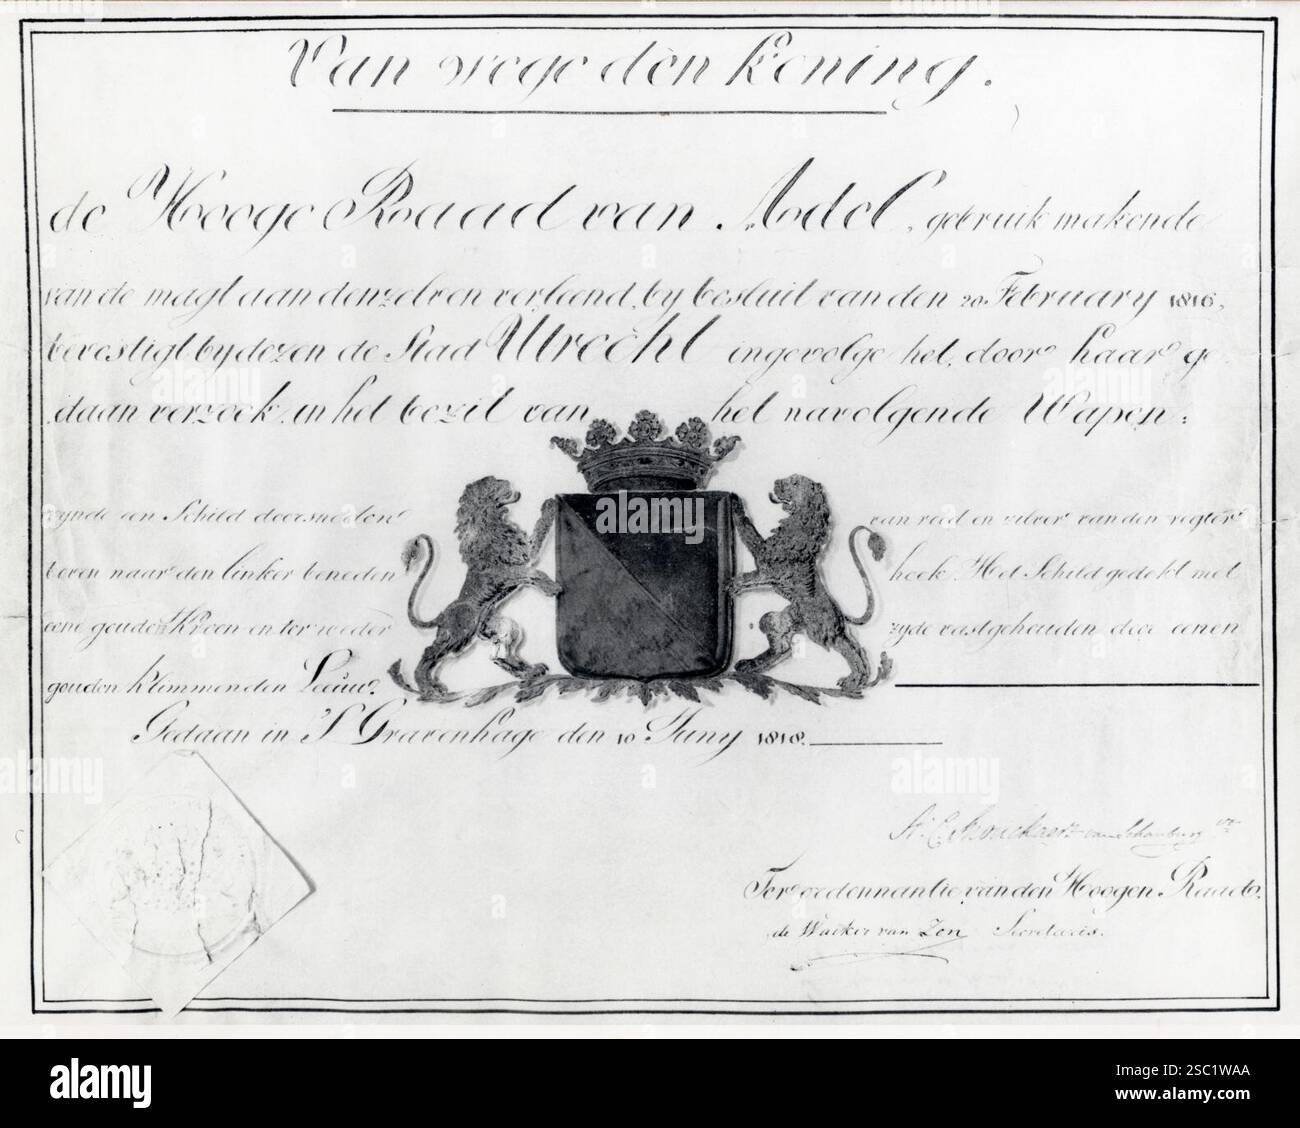 Van wege dèn Koning.
de Hooge Raad van Adel, gebruik makende
van de magt aan denzelven verleend, by besluit van den 20 February 1816,
bevestigt by dezen de Stad Utrecht ingevolge het, door haar ge
daan verzoek, in het bezit van het navolgende Wapen:
zynde een Schild doorsneden van rood en zilver van den regter
boven naar den linker beneden hoek. Het Schild gedekt met
eene gouden Kroon en ter weder zyde vastgehouden door eenen
gouden klimmenden Leeuw.
Gedaan in 'S Gravenhage den 10 Juny 1818.
van Schauburg vt
Ter ordonnantie van den Hoogen Raade.
de Wacker van Zon Secretaris.
alamy
Image ID: 2SC1WAA
www.alamy.com